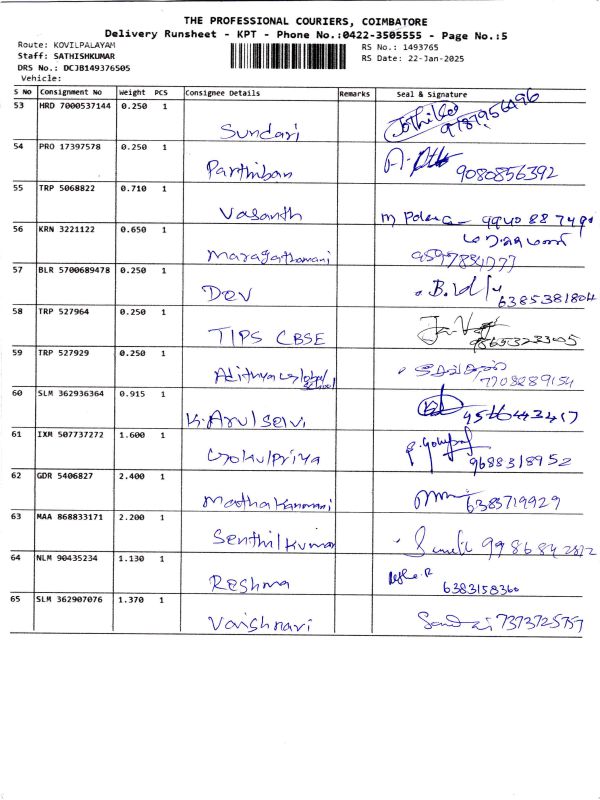 THE PROFESSIONAL COURIERS, COIMBATORE
Delivery Runsheet - KPT - Phone No.:0422-3505555 - Page No.:5
Route: KOVILPALAYAM
RS No.: 1493765
Staff: SATHISHKUMAR
RS Date: 22-Jan-2025
DRS No.: DCJB149376505
Vehicle:
S No Consignment No Weight PCS Consignee Details Remarks Seal & Signature
53 HRD 7000537144 0.250 1
Sundari 9787956496
54 PRO 17397578 0.250 1
Parthiban 9080856392
55 TRP 5068822 0.710 1
Vasanth
56 KRN 3221122 0.650 1
Maragathamani
57 BLR 5700689478 0.250 1
Dev 6385381804
58 TRP 527964 0.250 1
TIPS CBSE
59 TRP 527929 0.250 1
Adithya Global School 7708289154
60 SLM 362936364 0.915 1
K.Arulselvi
61 IXM 507737272 1.600 1
Gokulpriya 9688318952
62 GDR 5406827 2.400 1
6385719929
63 MAA 868833171 2.200 1
Senthilkumar
64 NLM 90435234 1.130 1
Reshma 6383158360
65 SLM 362907076 1.370 1
Vaishnavi 7373725757